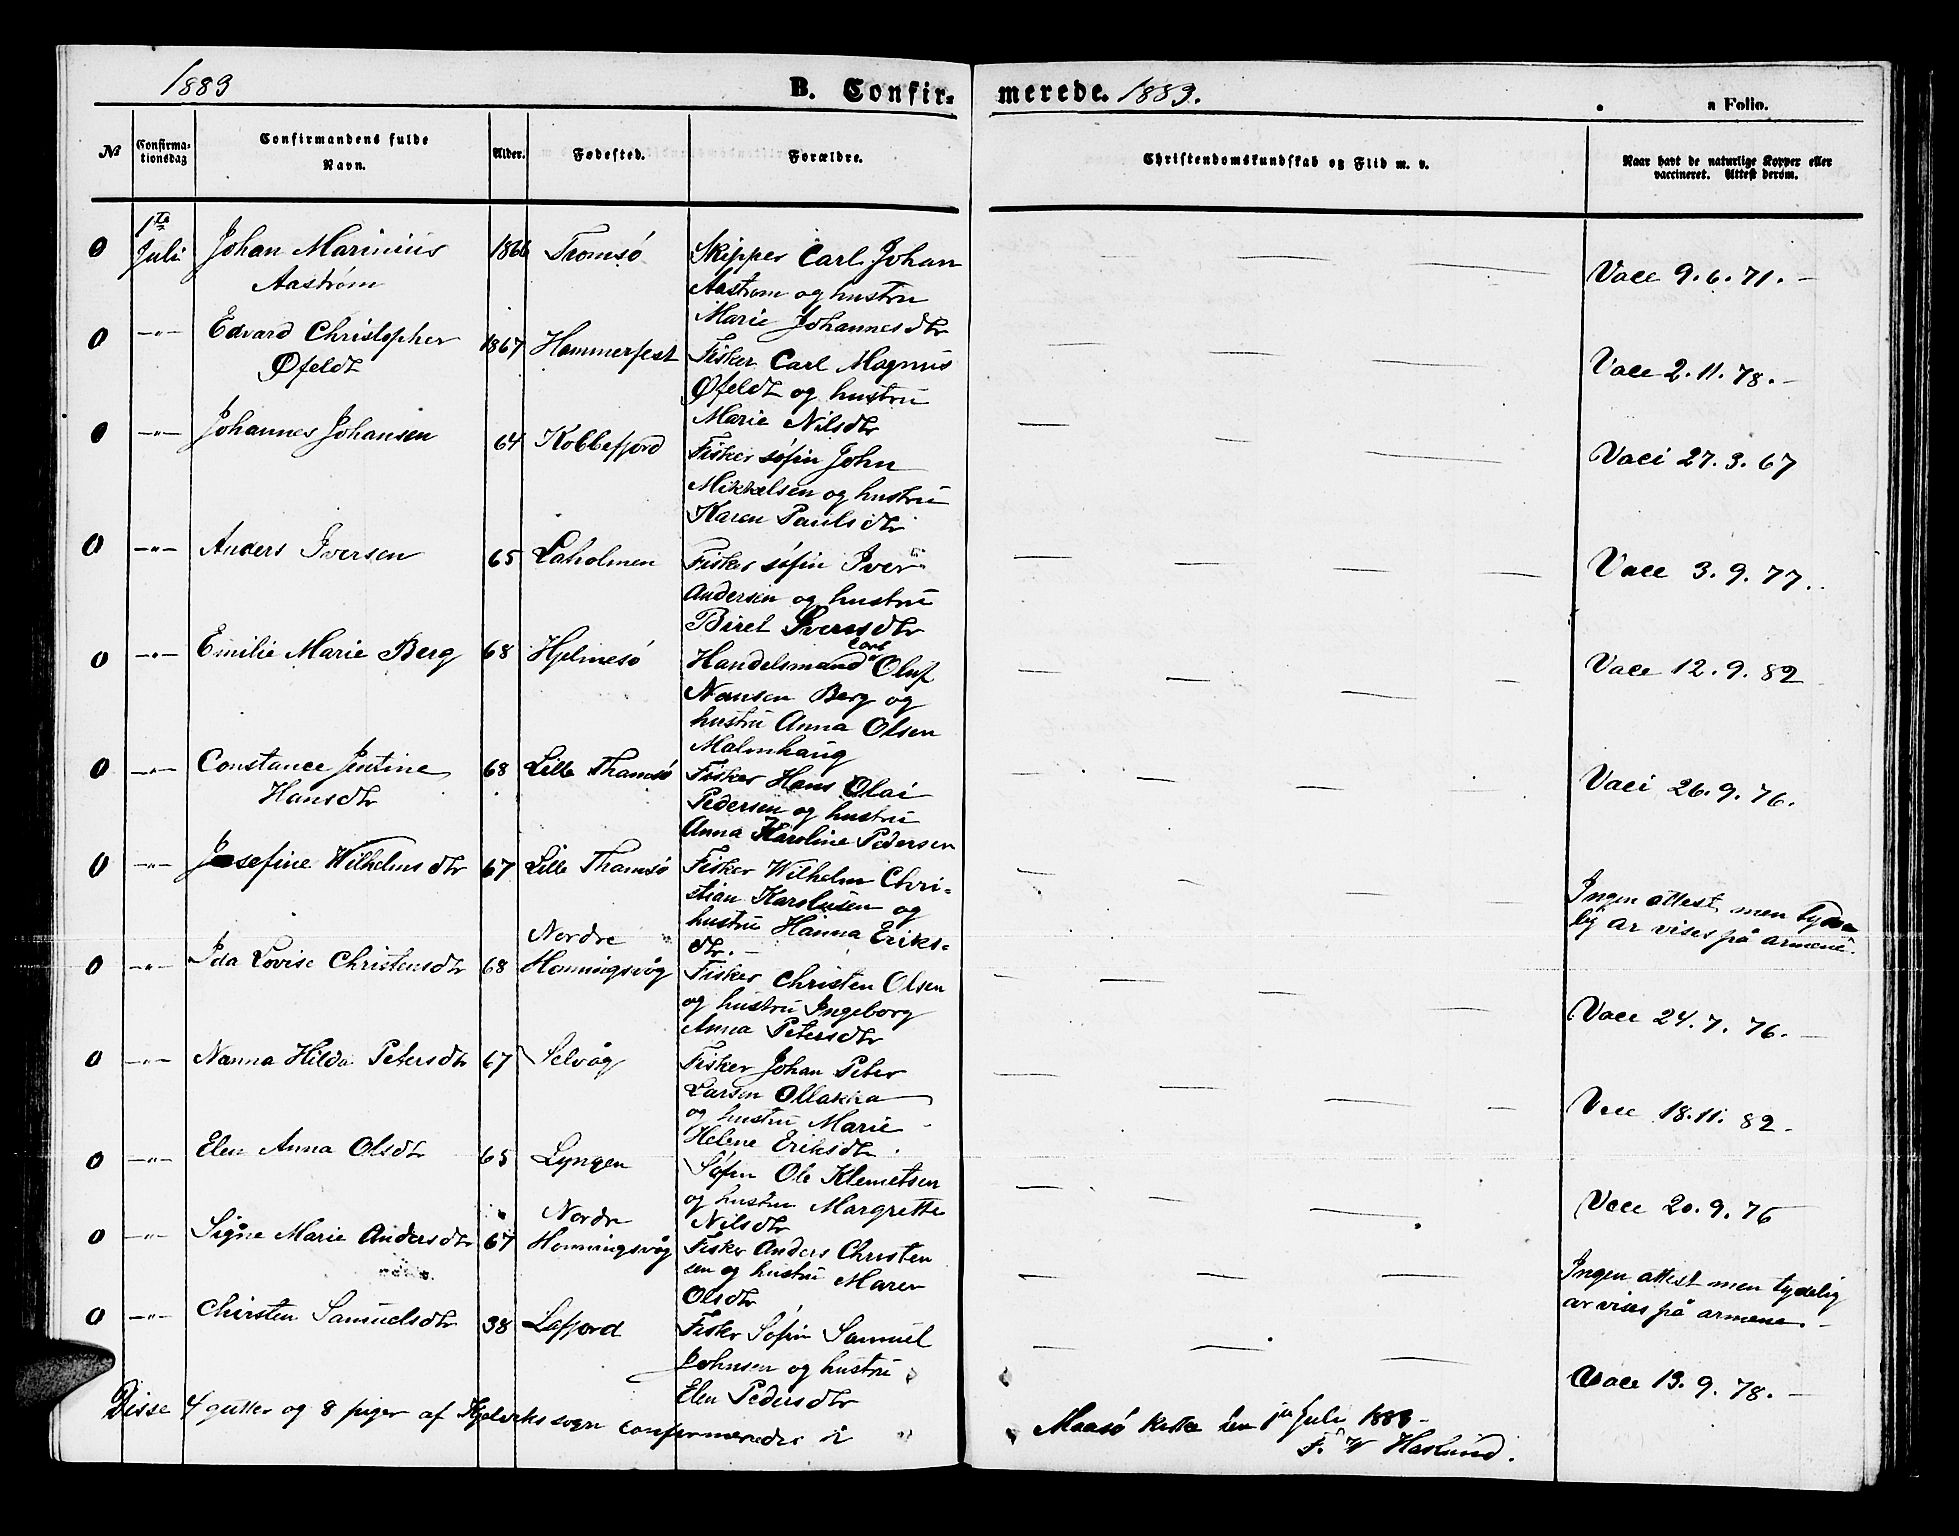 1883
B. Confir-
merede. 1883.
a Folio.
No
Confirma-
tionsdag
Confirmandens fulde
Navn.
Alder.
Fødested.
Forældre.
Christendomskundskab og Flid m. v.
Naar havt de naturlige Kopper eller
vaccineret. Attest derom.
0 1te Juli Johan Marinius 1866 Tromsø Skipper Carl Johan
Aastrøm Aastrøm og hustru Vacc 9.6.71.-
Marie Johannesdtr
0 -"- Edvard Christopher 1867 Hammerfest Fisker Carl Magnus
Øfeldt Øfeldt og hustru Vacc 2.11.78.-
Marie Nilsdtr
0 -"- Johannes Johansen 64 Kobbefjord Fisker søfin John
Mikkelsen og hustru Vacci 27.3.67
Karen Paulsdtr
0 -"- Anders Iversen 65 Laholmen Fisker søfin Iver
Andersen og hustru Vacc 3.9.77.
Biret Iversdtr
0 -"- Emilie Marie Berg 68 Hjelmesø Handelsmand Oluf
Nansen Berg og Vacc 12.9.82
hustru Anna Olsen
Malmhaug
0 -"- Constance Jentine 68 Lille Thamsø Fisker Hans Olai
Hansdtr Pedersen og hustru Vacci 26.9.76.
Anna Karoline Pedersen
0 -"- Josefine Wilhelmsdtr 67 Lille Thamsø Fisker Wilhelm Chri-
stian Karolusen og Ingen attest men tyde
hustru Hanna Eriks- lig ar vises på armene.
dtr.-
0 -"- Ida Lovise Christensdtr 68 Nordre Honningsvåg Fisker Christen Olsen
og hustru Ingeborg Vacc 24.7.76.-
Anna Petersdtr
0 -"- Nanna Hilda Petersdtr 67 Selvåg Fisker Johan Peter
Larsen
og hustru Marie Vacc 18.11.82.
Helene Eriksdtr.
0 -"- Elen Anna Olsdtr 65 Lyngen Søfin Ole Klemetsen
og hustru Margrette Vacc 20.9.76
Nilsdtr
0 -"- Signe Marie Andersdtr 67 Nordre Honningsvåg Fisker Anders Christen
sen og hustru Maren Ingen attest men tydelig
Olsdtr ar vises på armene.-
0 -"- Chirsten Samuelsdtr 38 Lafjord Fisker Søfin Samuel
Johnsen og hustru Vacc 13.9.78.-
Elen Pedersdtr
Disse 4 gutter og 8 piger af Kjelviks sogn confirmeredes i
Maasø kirke den 1ste Juli 1883-
F. W Haslund.